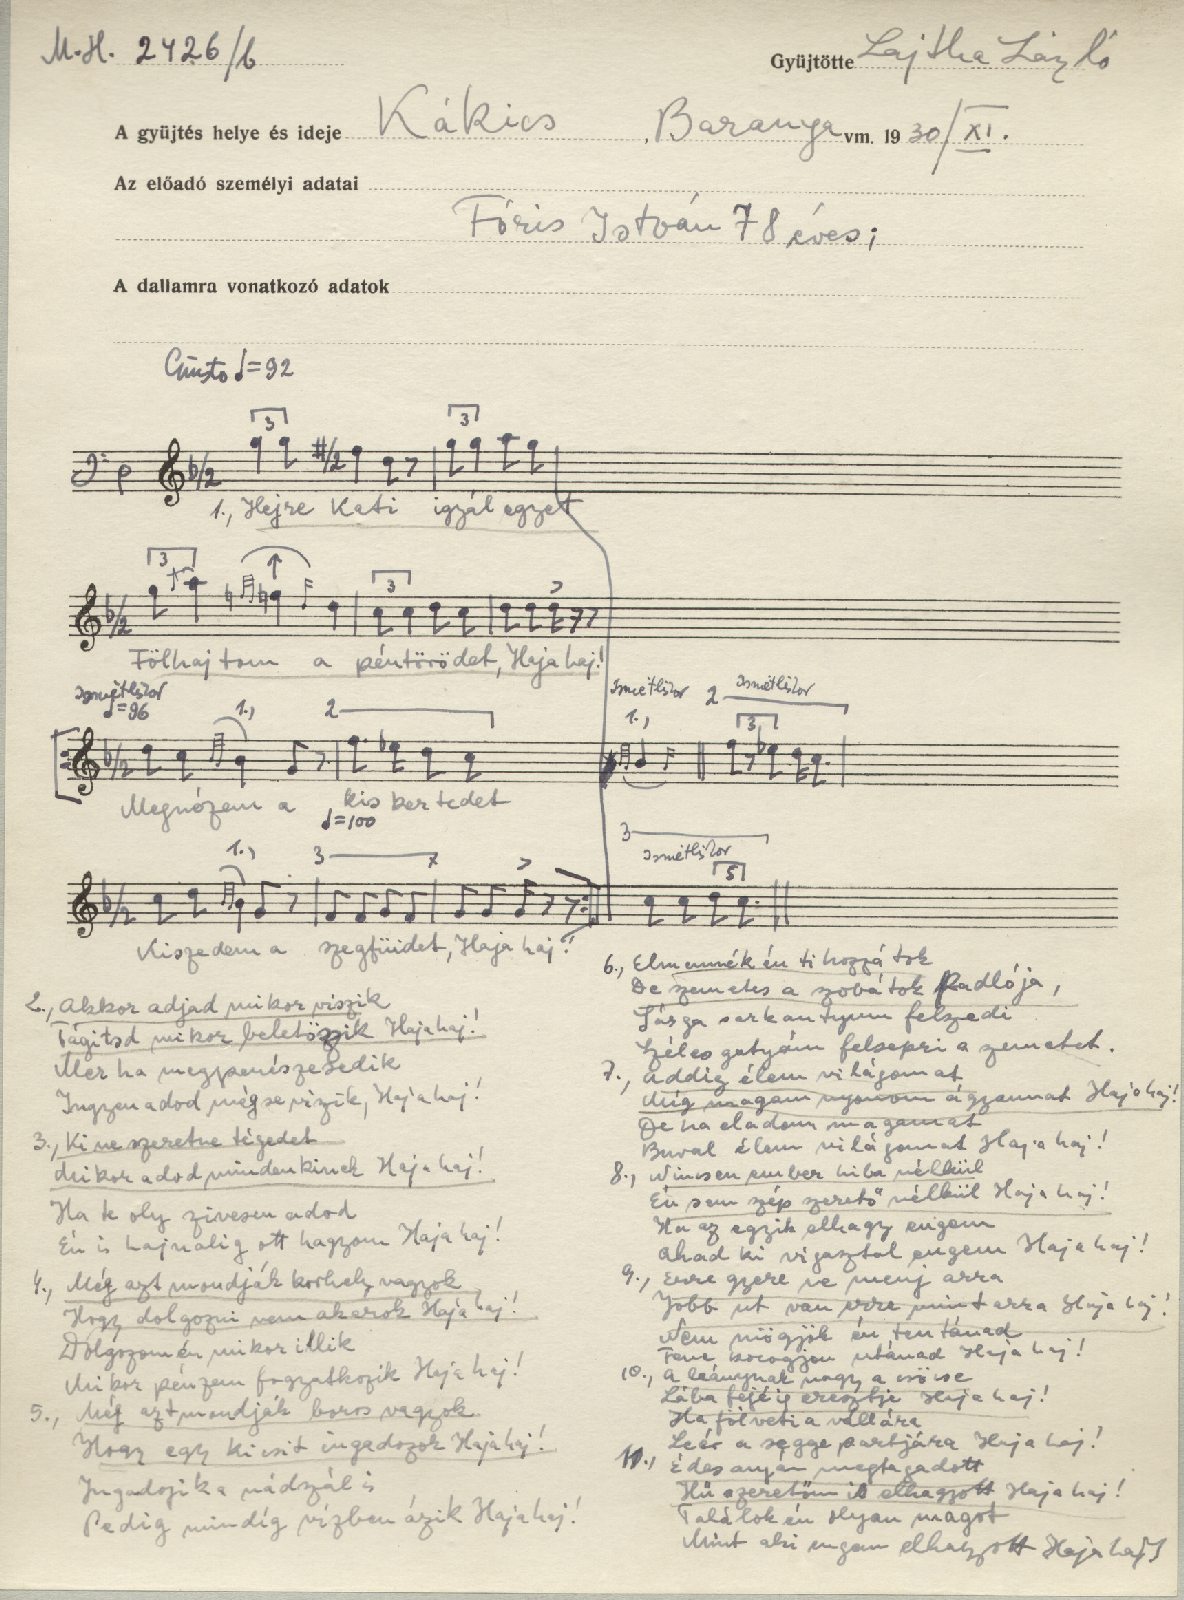 M.H. 2426/b
Gyüjtötte Lajtha László
A gyüjtés helye és ideje Kákics, Baranya vm. 1930/XI.
Az előadó személyi adatai
Fóris István 78 éves;
A dallamra vonatkozó adatok
Giusto ♩=92
3 3
1., Hejre Kati igyál egyet
3 3
Fölhajtom a péntörödet, Haja haj!
Ismétléskor ♩=96 1., 2 Ismétléskor 1., 2 Ismétléskor 3
Megnézem a kis kertedet
♩=100
1., 3 3 Ismétléskor 5
Kiszedem a szegfüidet, Haja haj!
2., Akkor adjad mikor viszik
Tágitsd mikor beletöszik Haja haj!
Mer ha megpenészesedik
Ingyen adod mégse vizik, Haja haj!
3., Ki ne szeretne tégedet
Mikor adod mindenkinek Haja haj!
Ha te oly zivesen adod
Én is hajnalig ott hagyom Haja haj!
4., Még azt mondják korhely vagyok
Hogy dolgozni nem akarok Haja haj!
Dolgozom én mikor illik
Mikor pénzem fogyatkozik Haja haj!
5., Még azt mondják boros vagyok
Hogy egy kicsit ingadozok Haja haj!
Ingadozik a nádszál is
Pedig mindig vizben ázik Haja haj!
6., Elmennék én ti hozzátok
De zemetes a szobátok padlója,
Sárga sarkantyum felszedi
Széles gatyám felsepri a zemetet.
7., Addig élem világomat
Mig magam nyomom ágyamat Haja haj!
De ha eladom magamat
Buval élem világomat Haja haj!
8., Nincsen ember hiba nélkül
Én sem szép szerető nélkül Haja haj!
Ha az egyik elhagy engem
Akad ki vigasztal engem Haja haj!
9., Erre gyere ne menj arra
Jobb ut van erre mint arra Haja haj!
Nem nögyök én tentánad
Fene kocogjon utánad Haja haj!
10., A leánynak nagy a csöcse
Lába fejéig eresztje Haja haj!
Ha fölveti a vállára
Leér a segge partjára Haja haj!
11., Édes anyám megtagadott
Hű szeretőm is elhagyott Haja haj!
Találok én olyan magot
Mint aki engem elhagyott Haja haj!